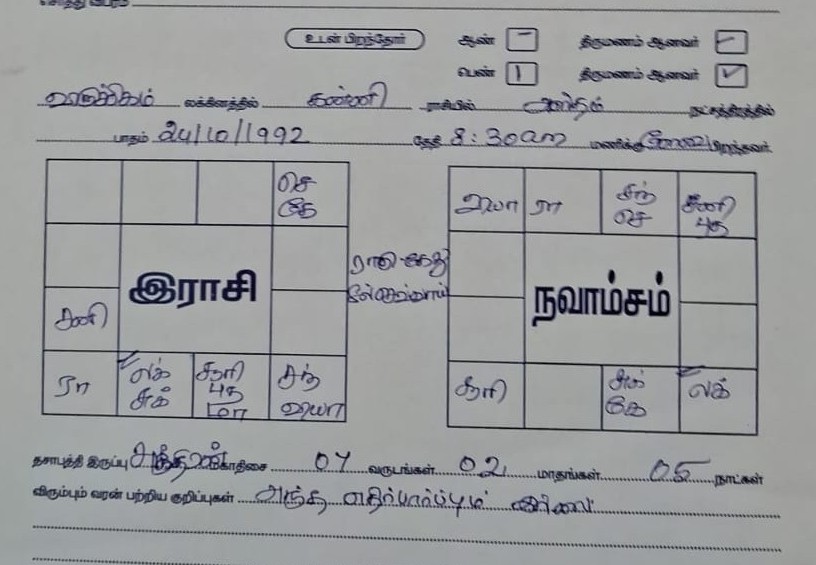 உடன் பிறந்தோர் ஆண் – திருமணம் ஆனவர் –
பெண் 1 திருமணம் ஆனவர் ✓
லக்கினத்தில் கன்னி ராசியில் நட்சத்திரத்தில்
பாதம் 24/10/1992 தேதி 8:30am மணிக்கு பிறந்தவர்
செ
கே
இராசி
சனி
ரா லக் சுக் சூரி புத மா சந் வியா
ராகு கேது
செவ்வாய்
வியா ரா சந் செ சனி புத
நவாம்சம்
சூரி சுக் கே லக்
தசாபுத்தி இருப்பு 07 வருடங்கள் 02 மாதங்கள் 05 நாட்கள்
விரும்பும் வரன் பற்றிய குறிப்புகள் எதிர்பார்ப்பும் இல்லை